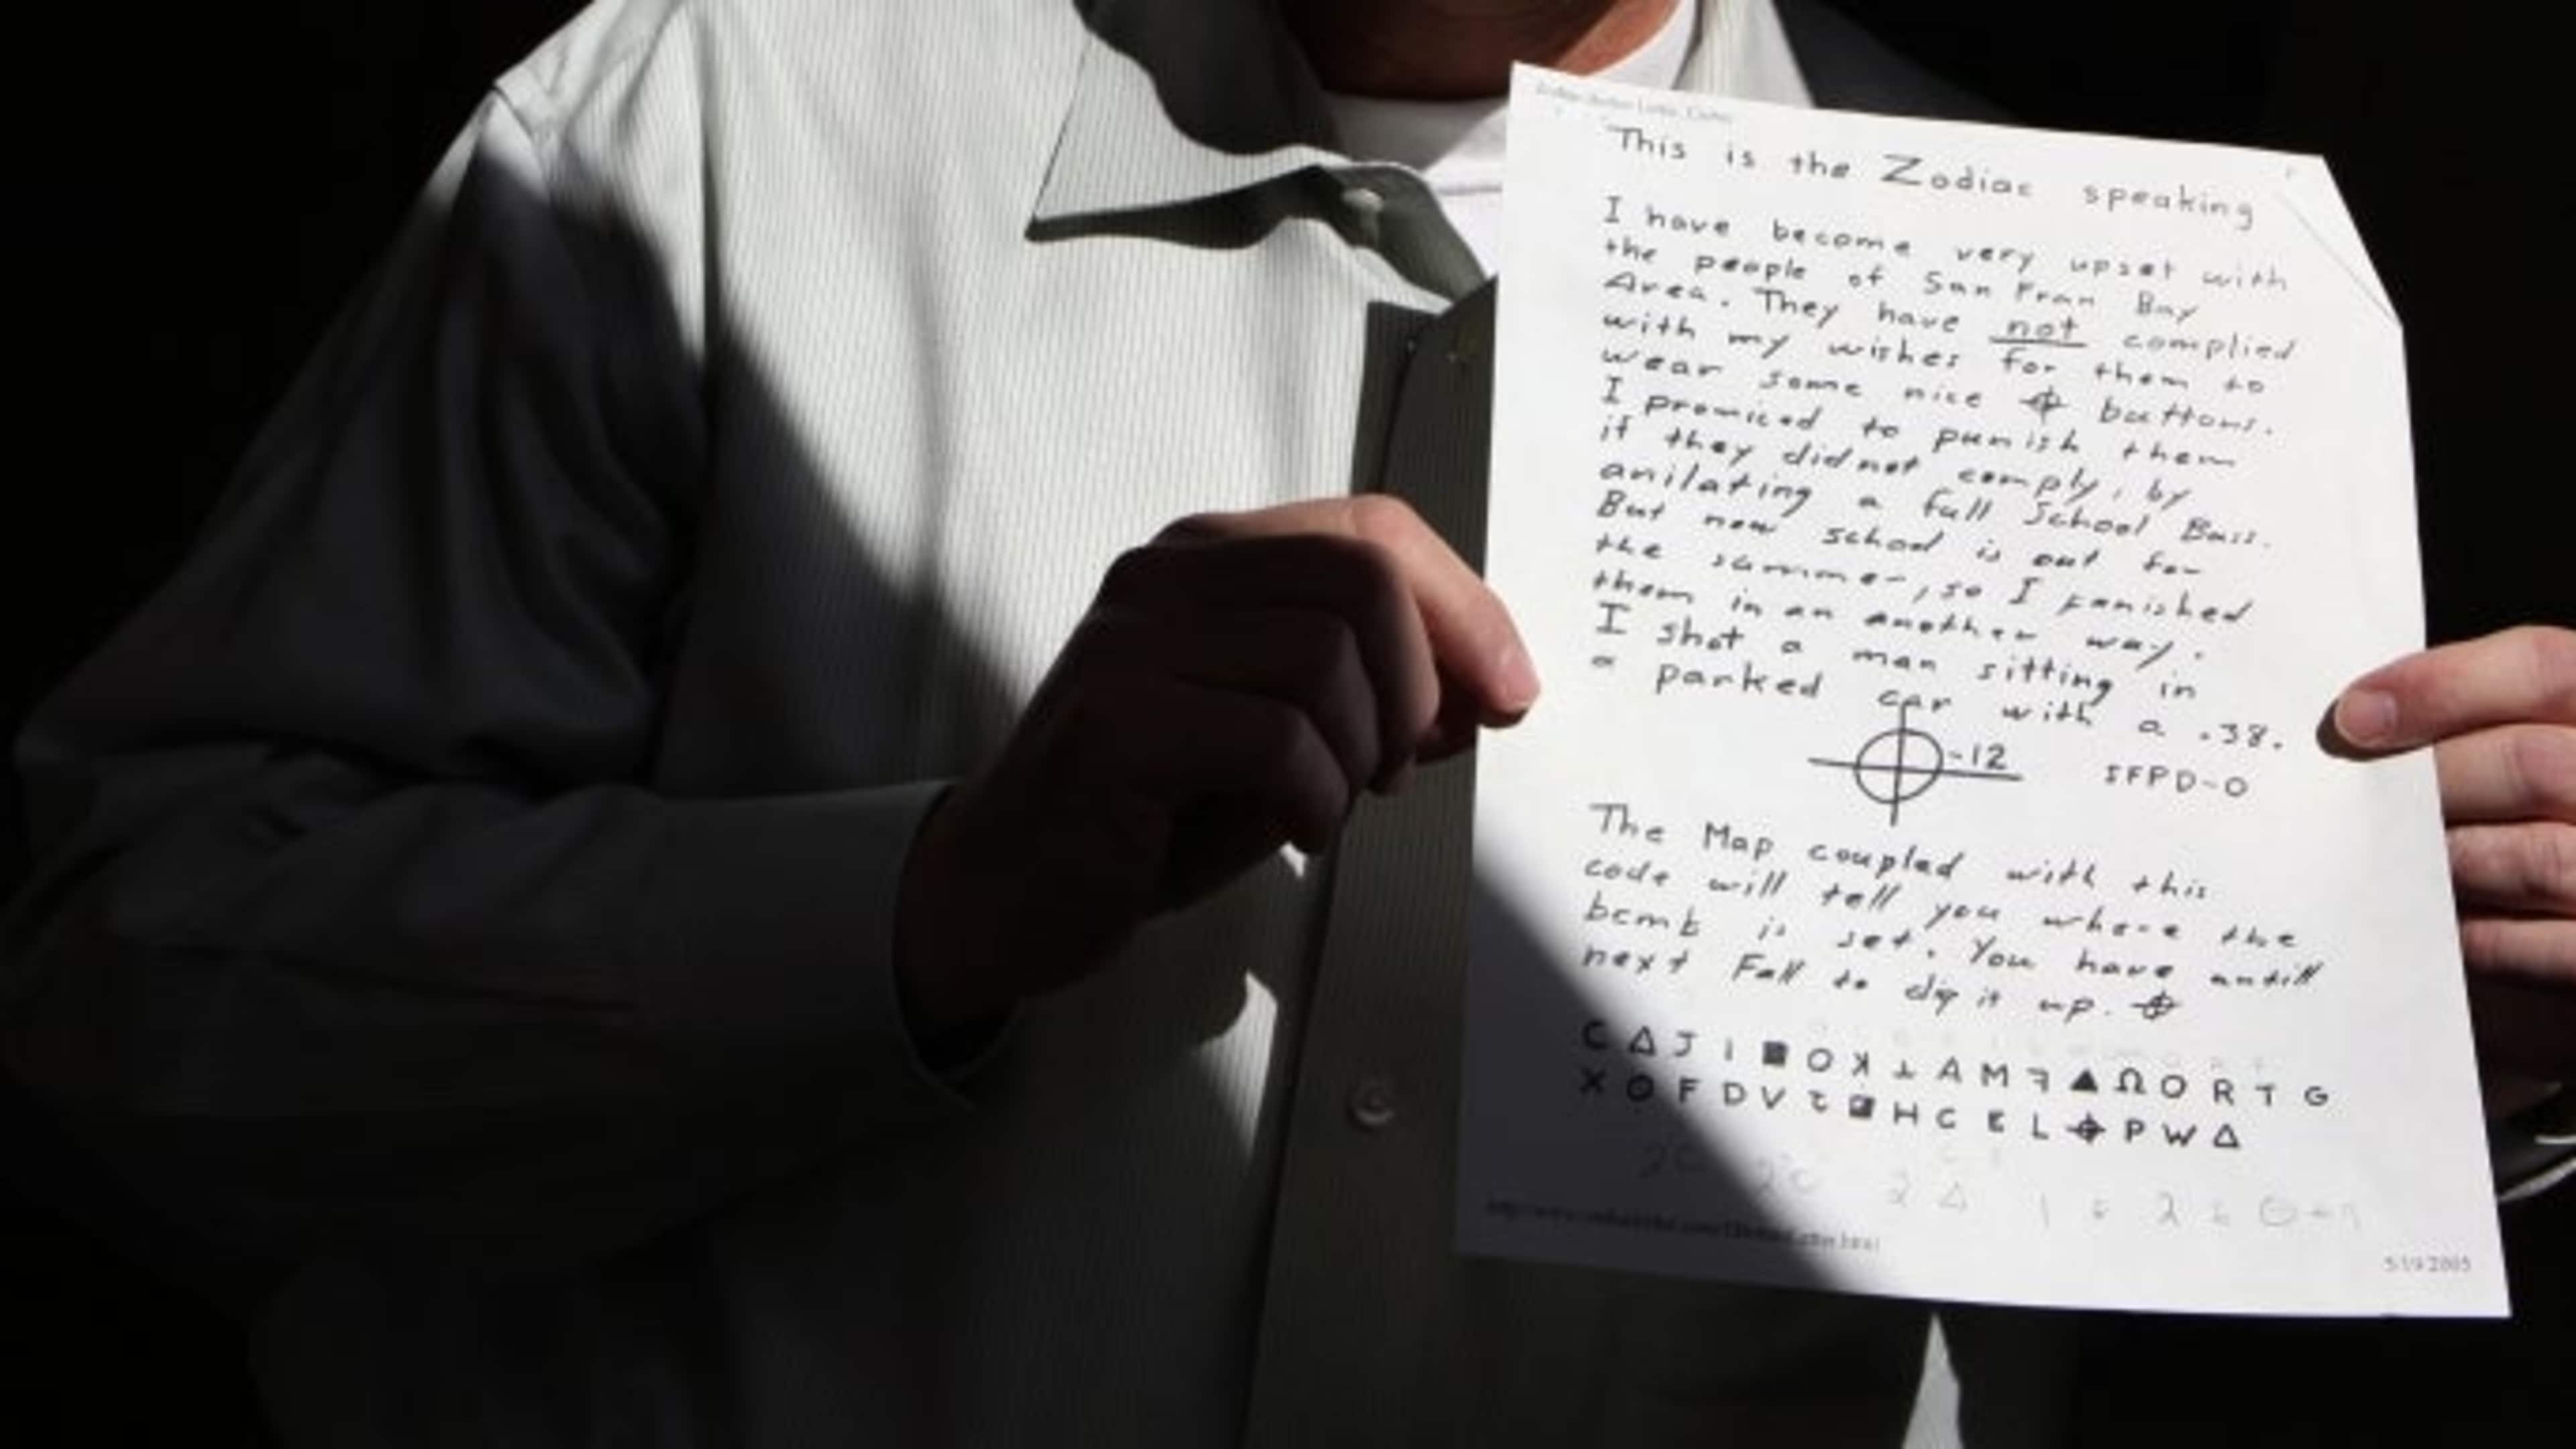 This is the Zodiac speaking
I have become very upset with
the people of San Fran Bay
Area. They have not complied
with my wishes for them to
wear some nice ⌖ buttons.
I promiced to punish them
if they did not comply, by
anilating a full School Buss.
But now school is out for
the summer, so I punished
them in an another way.
I shot a man sitting in
a parked car with a .38.
⌖-12 SFPD-0
The Map coupled with this
code will tell you where the
bomb is set. You have untill
next Fall to dig it up. ⌖
C Δ J I ■ O ꓘ ⅄ A M ꟻ ▲ Ω O R T G
X ⊙ F D V ㄛ ◪ H C E L ⌖ P W Δ
5/19/2005